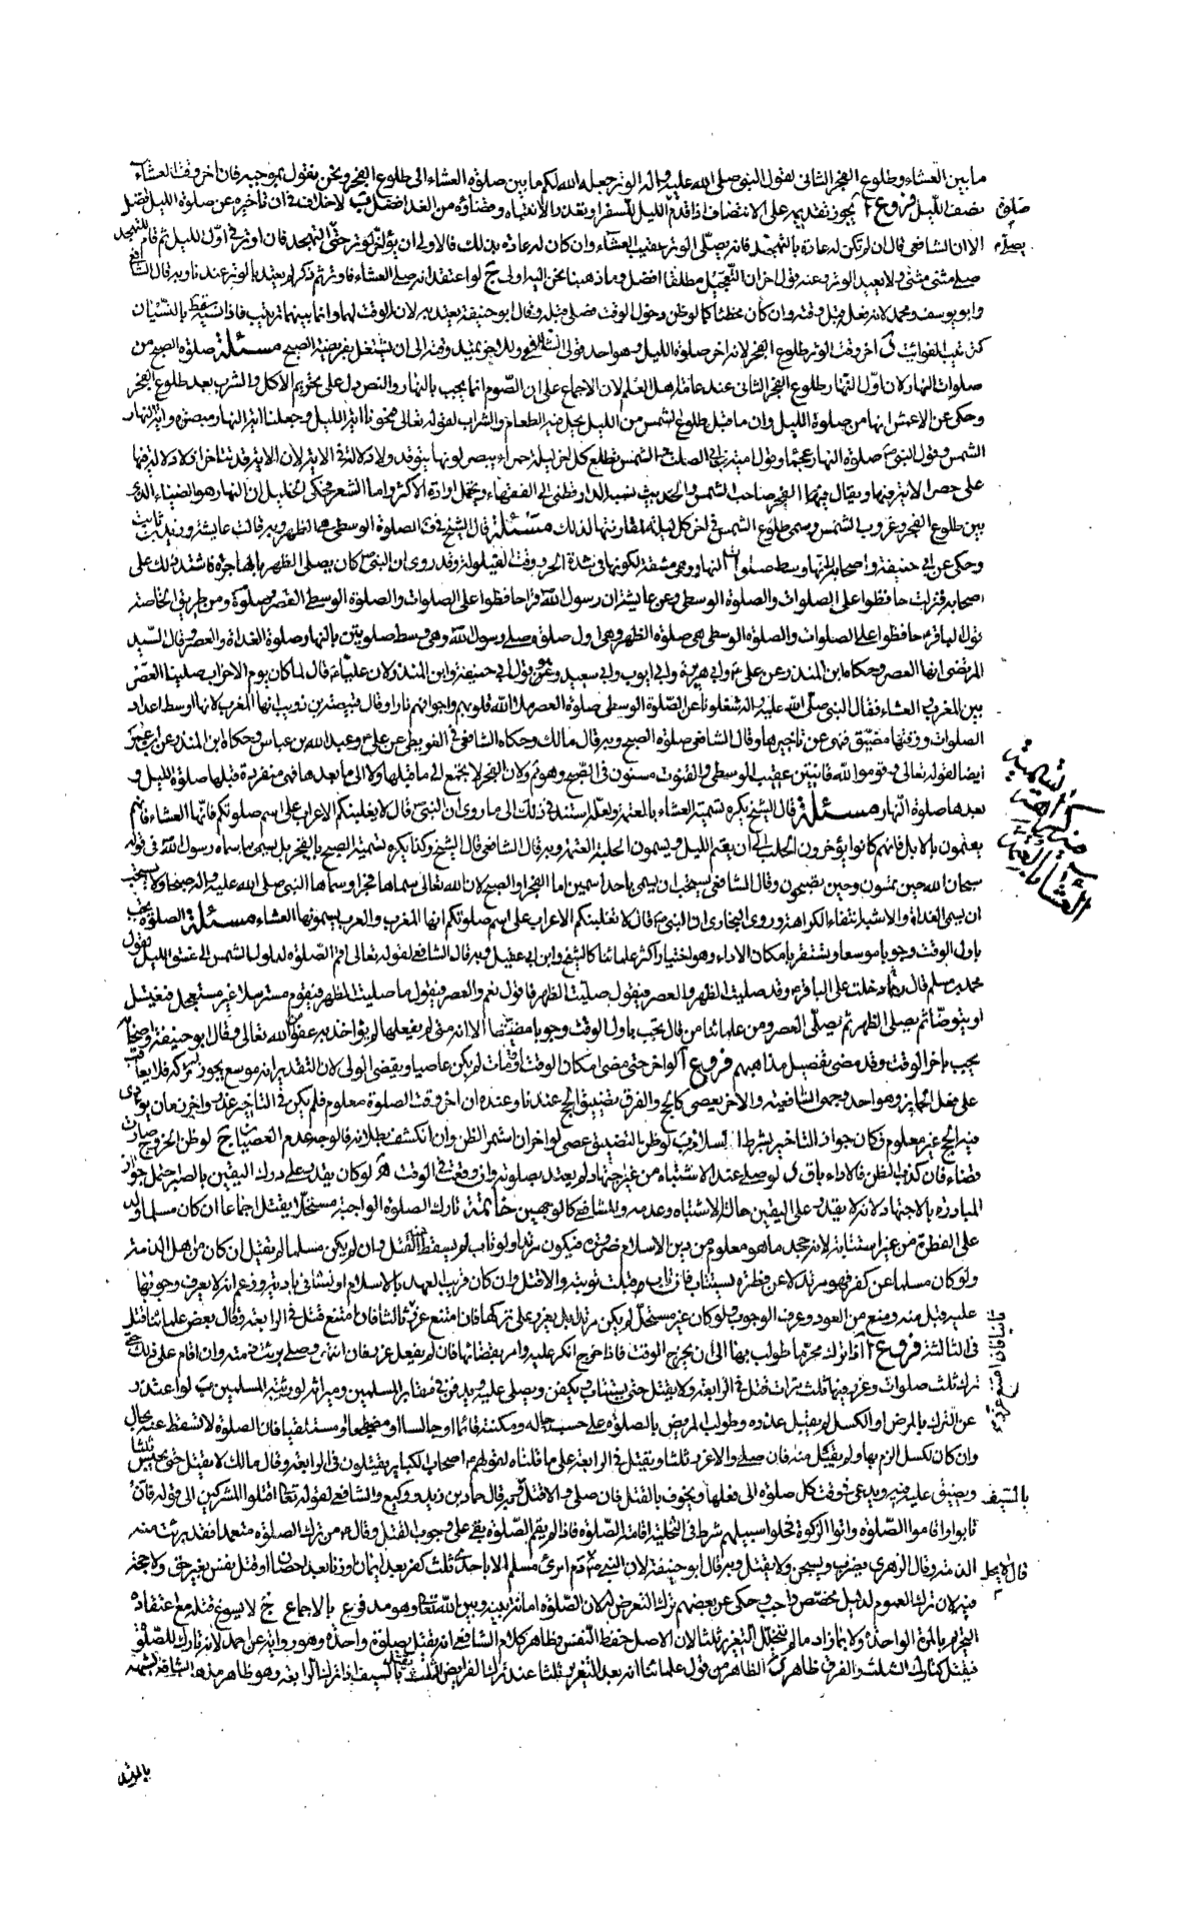 ما بين العشاء وطلوع الفجر الثانى لقول النبى صلى الله عليه واله الوتر جعله الله لكم ما بين صلوة العشاء الى طلوع الفجر ونحن نقول بموجبه فان اخر وقت العشاء
نصف الليل فروع ا يجوز تقديمه على الانتصاف اذا قدم الليل للسفر او يقدر الانتباه وقضاؤه من الغد افضل ب لا خلاف فى ان تأخيره عن صلوة الليل افضل
الا ان الشافعى قال ان لم تكن له عادة بالتهجد فانه يصلى الوتر عقيب العشاء وان كان له عادة بذلك فالاولى ان يؤخر الوتر حتى التهجد فان اوتر فى اول الليل ثم قام للتهجد
صلى مثنى مثنى ولا يعيد الوتر وعنه قول اخر ان التعجيل مطلقا افضل وما ذهبنا نحن اليه اولى ج لو اعتقد انه صلى العشاء فاوتر ثم ذكر لم يعتد بالوتر عندنا وبه قال الشافعى
وابو يوسف ومحمد لانه فعل قبل وقته وان كان مخطئا كما لو ظن دخول الوقت فصلى قبله وقال ابو حنيفة يعتد به لان الوقت لهما وانما بينهما ترتيب فاذا نسيه سقط بالنسيان
كترتيب الفوائت د اخر وقت الوتر طلوع الفجر لانه اخر صلوة الليل وهو احد قولى الشافعى وفى الاخر يمتد وقته الى ان يشتغل بفريضة الصبح مسئلة صلوة الصبح من
صلوات النهار لان اول النهار طلوع الفجر الثانى عند عامة اهل العلم لان الاجماع على ان الصوم انما يجب بالنهار والنص دل على تحريم الاكل والشرب بعد طلوع الفجر
وحكى عن الاعمش انها من صلوة الليل وان ما قبل طلوع الشمس من الليل يحل فيه الطعام والشراب لقوله تعالى فمحونا اية الليل وجعلنا اية النهار مبصرة واية النهار
الشمس وقول النبى صلوة النهار عجماء وقول امية بن ابى الصلت والشمس تطلع كل اخر ليلة حمراء يبصر لونها يتوقد ولا دلالة فى الاية لان الاية قد تتاخر اولا دلالة فيها
على حصر الاية فيها ويقال فيهما الفجر حاجب الشمس والحديث نسبه الدارقطنى الى الفقهاء ويحتمل ارادة الاكثر واما الشعر فحكى الخليل ان النهار هو الضياء الذى
بين طلوع الفجر وغروب الشمس وسمى طلوع الشمس فى اخر كل ليلة لمقارنتها لذلك مسئلة قال الشيخ فى ف الصلوة الوسطى هى الظهر وبه قالت عايشة وزيد بن ثابت
وحكى عن ابى حنيفة واصحابه لانها وسط صلوات النهار وهى مشقة لكونها فى شدة الحر ووقت القيلولة وقد روى ان النبى كان يصلى الظهر بالهاجرة فاشتد ذلك على
اصحابه فنزلت حافظوا على الصلوات والصلوة الوسطى وعن عايشة ان رسول الله قرا حافظوا على الصلوات والصلوة الوسطى وصلوة العصر ومن طريق الخاصة
قول الباقر حافظوا على الصلوات والصلوة الوسطى هى صلوة الظهر وهى اول صلوة صلى رسول الله وهى وسط صلوتين بالنهار صلوة الغداة والعصر وقال السيد
المرتضى انها العصر وحكاه ابن المنذر عن على وابى هريرة وابى ايوب وابى سعيد وهو قول ابى حنيفة وابن المنذر لان عليا قال لما كان يوم الاحزاب صلينا العصر
بين المغرب والعشاء فقال النبى صلى الله عليه واله شغلونا عن الصلوة الوسطى صلوة العصر ملا الله قلوبهم واجوافهم نارا وقال قبيصة بن ذويب انها المغرب لانها اوسط اعداد
الصلوات ووقتها مضيق فنهى عن تاخيرها وقال الشافعى صلوة الصبح وبه قال مالك وحكاه الشافعى فى البويطى عن على وعبد الله بن عباس وحكاه ابن المنذر عن ابن عمر
ايضا لقوله تعالى وقوموا لله قانتين عقيب الوسطى والقنوت مسنون فى الصبح وهو ثم ولان الفجر لا يجتمع الى ما قبلها ولا الى ما بعدها فهى منفردة قبلها صلوة الليل و
بعدها صلوة النهار مسئلة قال الشيخ يكره تسمية العشاء بالعتمة ولعله استند فى ذلك الى ما روى ان النبى قال لا يغلبنكم الاعراب على اسم صلوتكم فانها العشاء فانهم
يعتمون بالابل فانهم كانوا يؤخرون الحلب الى ان يعتم الليل ويسمون الحلبة العتمة وبه قال الشافعى قال الشيخ وكذا يكره تسمية الصبح بالفجر بل يسمى بما سماه رسول الله فى قوله
سبحان الله حين تمسون وحين تصبحون وقال الشافعى يستحب ان يسمى باحد اسمين اما الفجر او الصبح لان الله تعالى سماها فجرا وسماها النبى صلى الله عليه واله صبحا ولا يستحب
ان يسمى الغداة والاشبه انتفاء الكراهة وروى البخارى ان النبى قال لا تغلبنكم الاعراب على اسم صلوتكم انها المغرب والعرب يسمونها العشاء مسئلة الصلوة تجب
باول الوقت وجوبا موسعا ويستقر بامكان الاداء وهو اختيار اكثر علمائنا كالشيخ وابن ابى عقيل وبه قال الشافعى لقوله تعالى اقم الصلوة لدلوك الشمس الى غسق الليل ولقول
محمد بن مسلم قال ربما دخلت على الباقر وقد صليت الظهر والعصر فيقول صليت الظهر فاقول نعم والعصر فيقول ما صليت الظهر فيقوم مسترسلا غير مستعجل فيغتسل
او يتوضا ثم يصلى الظهر ثم يصلى العصر ومن علمائنا من قال يجب باول الوقت وجوبا مضيقا الا انه متى لم يفعلها لم يؤاخذ به عفوا من الله تعالى وقال ابو حنيفة واصحابه
يجب باخر الوقت وقد مضى تفصيل مذاهبهم فروع ا لو اخر حتى مضى امكان الوقت ومات لم يكن عاصيا ويقضى الولى لان التقدير انه موسع يجوز تركه فلا يعاقب
على فعل الجايز وهو احد وجهى الشافعية والاخر يعصى كالحج والفرق تضييق الحج عندنا وعنده ان اخر وقت الصلوة معلوم فلم يكن فى التاخير غرر واخر زمان يؤدى
فيه الحج غير معلوم فكان جواز التاخير بشرط السلامة ب لو ظن التضيق عصى لو اخر ان استمر الظن وان انكشف بطلانه فالوجه عدم العصيان ج لو ظن الخروج صارت
قضاء فان كذب الظن فالاداء باق د لو صلى عند الاشتباه من غير اجتهاد لم يعتد بصلوته وان وقعت فى الوقت ه لو كان يقدر على درك اليقين بالصبر احتمل جواز
المبادرة بالاجتهاد لانه لا يقدر على اليقين حالة الاشتباه وعدمه وللشافعى كالوجهين خاتمة تارك الصلوة الواجبة مستحلا يقتل اجماعا ان كان مسلما ولد
على الفطرة من غير استتابة لانه جحد ما هو معلوم من دين الاسلام ضرورة فيكون مرتدا ولو تاب لم يسقط القتل وان لم يكن مسلما لم يقتل ان كان من اهل الذمة
ولو كان مسلما عن كفر فهو مرتد لا عن فطرة يستتاب فان تاب قبلت توبته والا قتل وان كان قريب العهد بالاسلام او نشأ فى بادية وزعم انه لا يعرف وجوبها
عليه قبل منه ومنع من العود وعرف الوجوب ولو كان غير مستحل لم يكن مرتدا بل يعزر على تركها فان امتنع عزر ثالثا فان امتنع قتل فى الرابعة وقال بعض علمائنا يقتل
فى الثالثة فروع ا اذا ترك محرمها طولب بها الى ان يخرج الوقت فاذا خرج انكر عليه وامر بقضائها فان لم يفعل عزر فان انتهى وصلى برئت ذمته وان اقام على ذلك حتى
ترك ثلث صلوات وعزر فيها ثلث مرات قتل فى الرابعة ولا يقتل حتى يستتاب ويكفن ويصلى عليه ويدفن فى مقابر المسلمين وميراثه لورثته المسلمين ب لو اعتذر
عن الترك بالمرض او الكسل لم يقبل عذره وطولب المريض بالصلوة على حسب حاله ومكنته قائما او جالسا او مضطجعا او مستلقيا فان الصلوة لا تسقط عنه بحال
وان كان لكسل الزم بها ولم يقبل منه فان صلى والا عزر ثلثا ويقتل فى الرابعة على ما قلناه لقولهم اصحاب الكباير يقتلون فى الرابعة وقال مالك لا يقتل حتى يحبس ثلثا
ويضيق عليه فيه ويدعى فى وقت كل صلوة الى فعلها ويخوف بالقتل فان صلى والا قتل وبه قال حماد بن زيد ووكيع والشافعى لقوله تعالى اقتلوا المشركين الى قوله فان
تابوا واقاموا الصلوة واتوا الزكوة فخلوا سبيلهم شرط فى التخلية اقامة الصلوة فاذا لم يقم الصلوة بقى على وجوب القتل وقال من ترك الصلوة متعمدا فقد برئت منه
الذمة وقال الزهرى يضرب ويسجن ولا يقتل وبه قال ابو حنيفة لان النبى دم امرئ مسلم الا باحدى ثلث كفر بعد ايمان او زنا بعد احصان او قتل نفس بغير حق ولا حجة
فيه لان ترك العموم لدليل مخصص واجب وحكى عن بعضهم ترك التعرض له لان الصلوة امانة بينه وبين الله تعالى وهو مدفوع بالاجماع ج لا يسوغ قتله مع اعتقاده
التحريم بالمرة الواحدة ولا بما زاد ما لم يتخلل التعزير ثلثا لان الاصل حفظ النفس وظاهر كلام الشافعى انه يقتل بصلوة واحدة وهو رواية عن احمد لانه تارك للصلوة
فيقتل كتارك الثلث والفرق ظاهر د الظاهر من قول علمائنا انه بعد التعزير ثلثا عند ترك الفرايض الثلث يقتل بالسيف اذا ترك الرابعة وهو ظاهر مذهب الشافعى
بالمرتد
صلوة
قال لا يحل
بالسيف